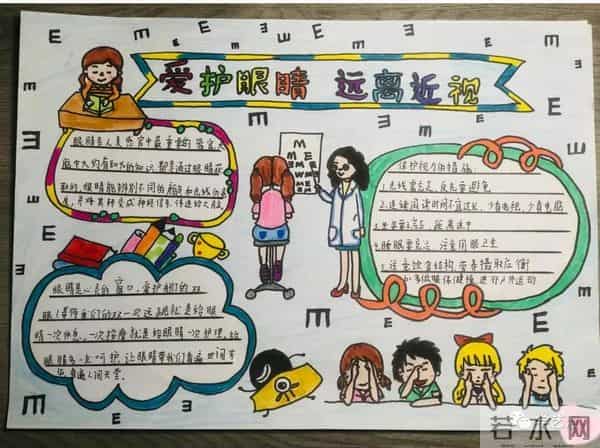 爱护眼睛 远离近视
眼睛是人类感官中最重要的器官,大
脑中大约有80%的知识都是通过眼睛获
取的,眼睛能辨别不同的颜色和光线的亮
度,并将其转变成神经信号,传送给大脑
眼睛是心灵的窗口,爱护我们的双
眼
一次休息,一次按摩就是给眼睛一次护理,给
眼睛多一点呵护,让眼睛带我们看遍世间万
M
ME
MEM
保护视力的措施
1.光线要充足,反光要避免
2.连续阅读时间不宜过长,少看电视,少看电脑
3.坐姿要端正,距离适中
4.睡眠要充足,注意用眼卫生
5.注意饮食结构,营养摄取应衡
多做眼保健操,进行户外运动
若水网